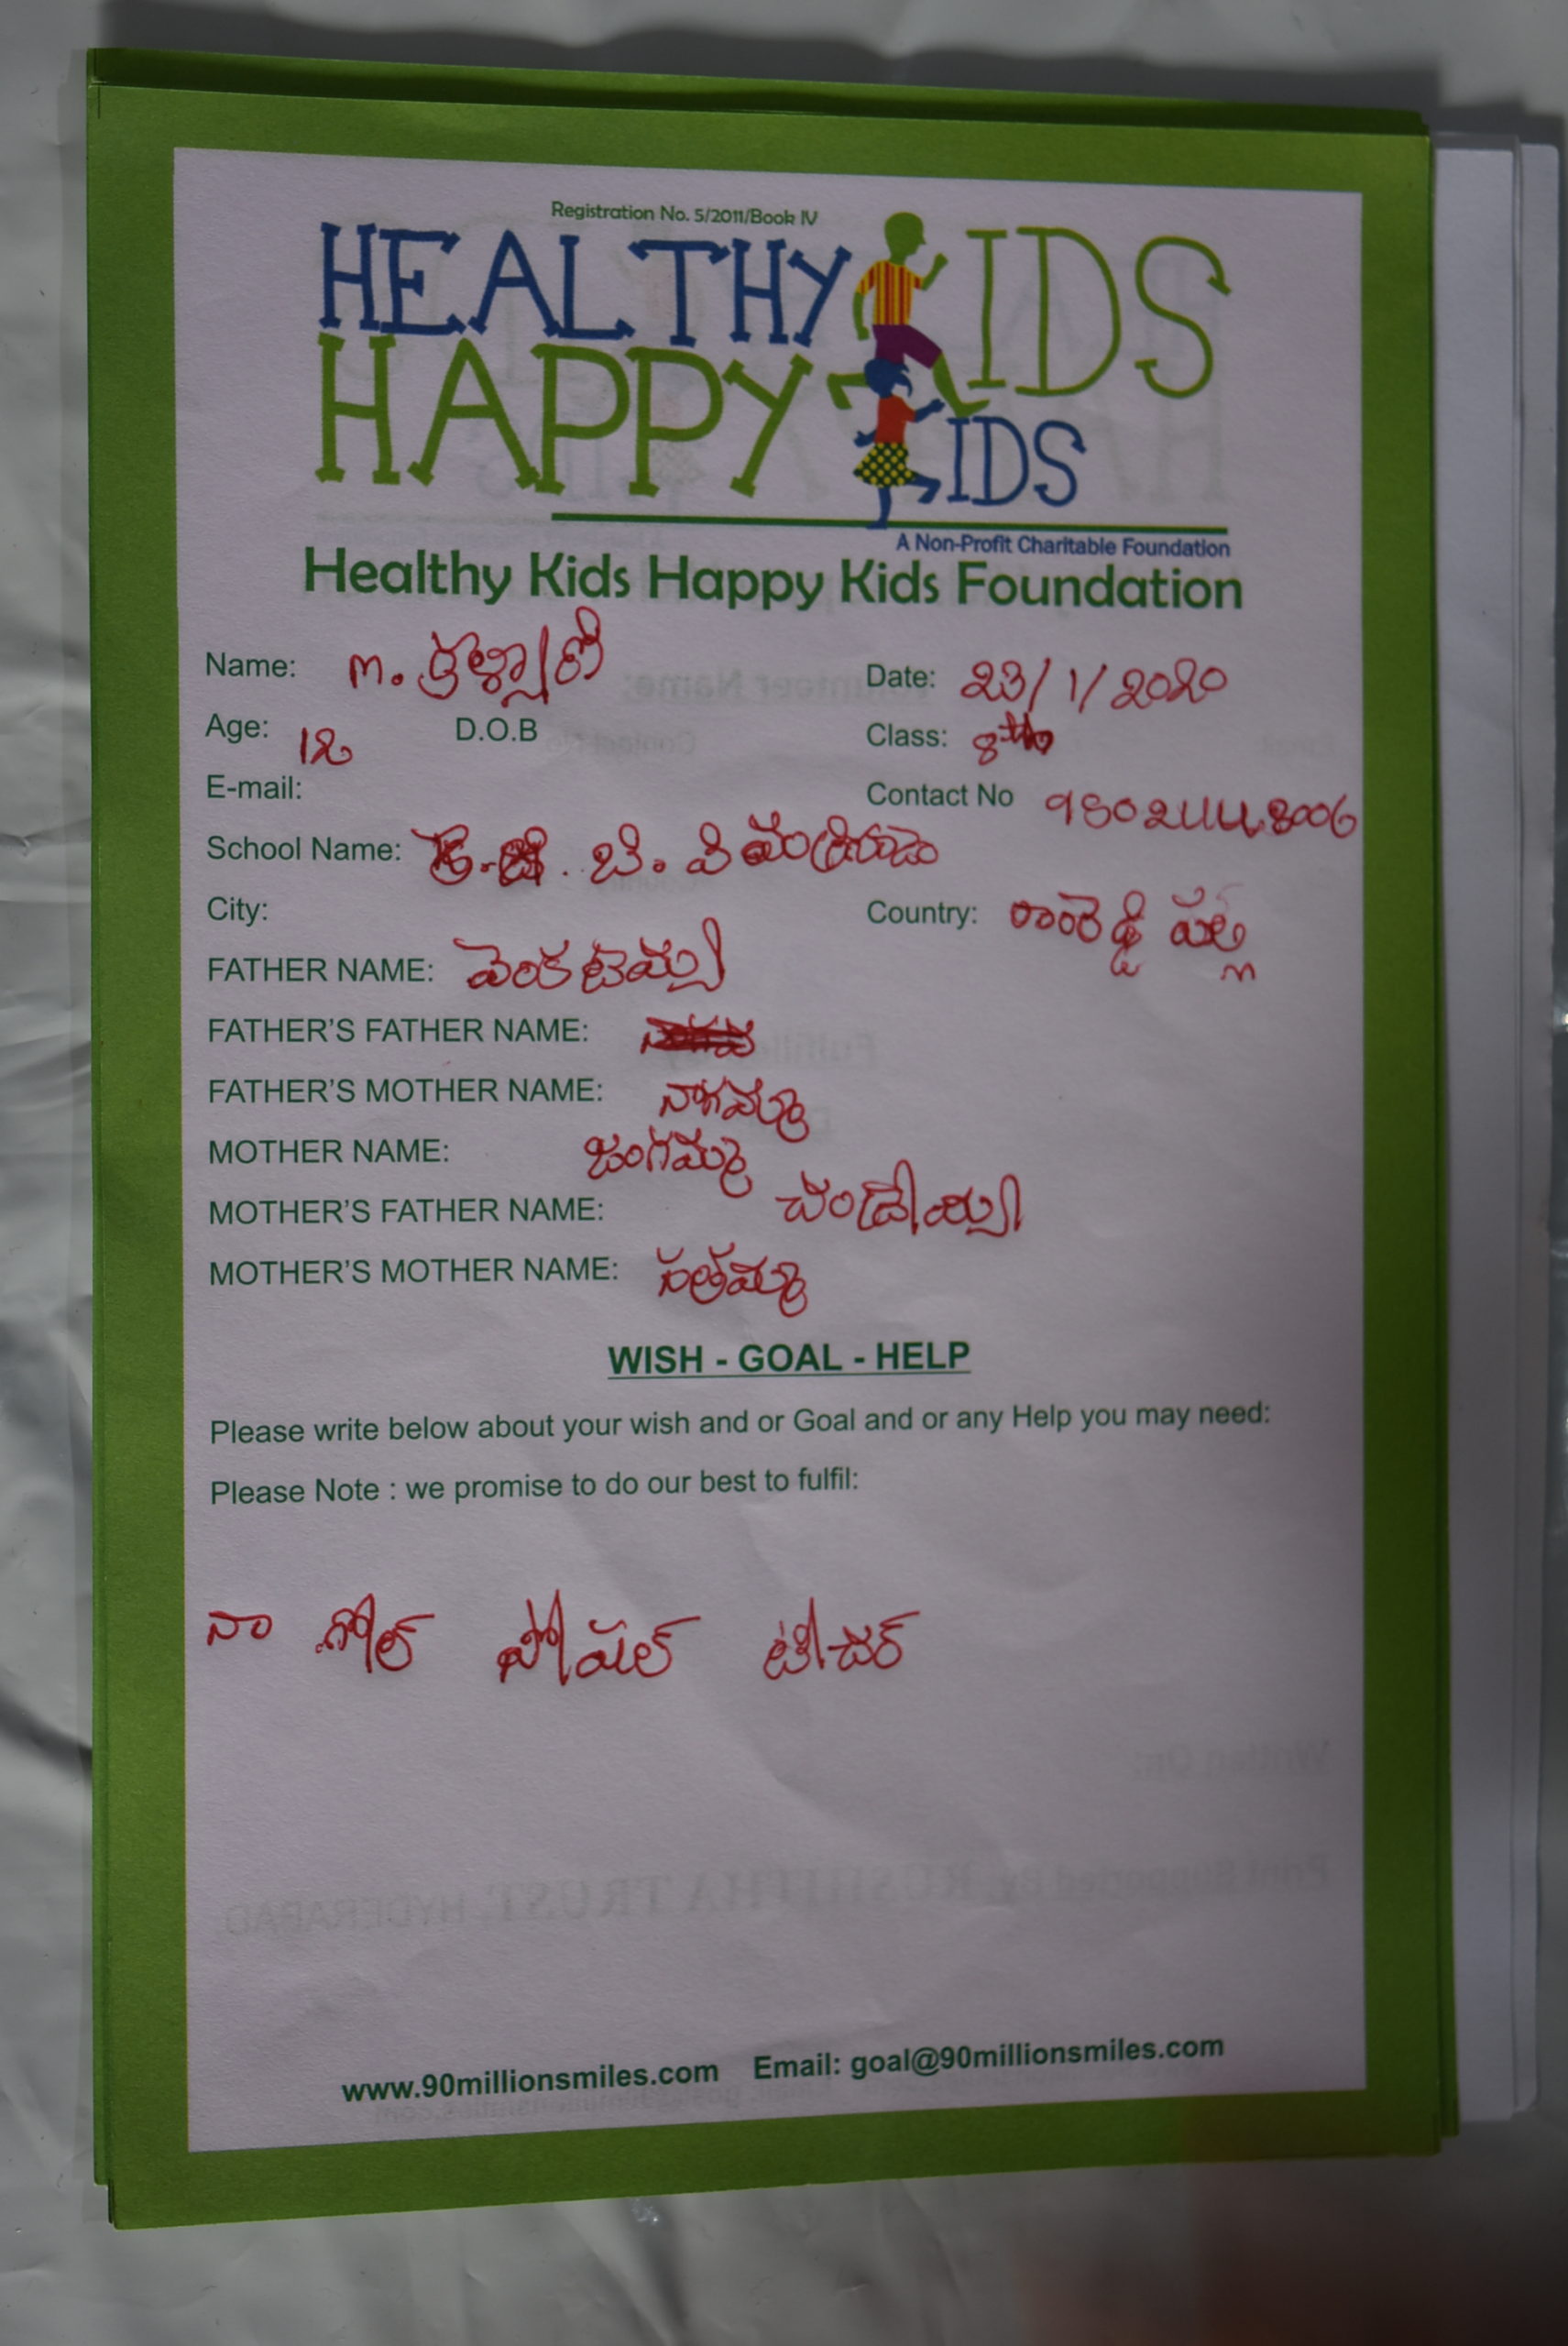 Registration No. 5/2011/Book IV
HEALTHY KIDS
HAPPY KIDS
A Non-Profit Charitable Foundation
Healthy Kids Happy Kids Foundation
Name: m. కళ్యాణి Date: 23/1/2020
Age: 12 D.O.B Class: 8th
E-mail: Contact No
School Name: బి. వి
City: Country: రాంరెడ్డి పల్లి
FATHER NAME: వెంకటయ్య
FATHER'S FATHER NAME:
FATHER'S MOTHER NAME: నాగమ్మ
MOTHER NAME: జంగమ్మ
MOTHER'S FATHER NAME: చంద్రయ్య
MOTHER'S MOTHER NAME: సత్తమ్మ
WISH - GOAL - HELP
Please write below about your wish and or Goal and or any Help you may need:
Please Note : we promise to do our best to fulfil:
నా గోల్ సోషల్ టీచర్
www.90millionsmiles.com Email: goal@90millionsmiles.com